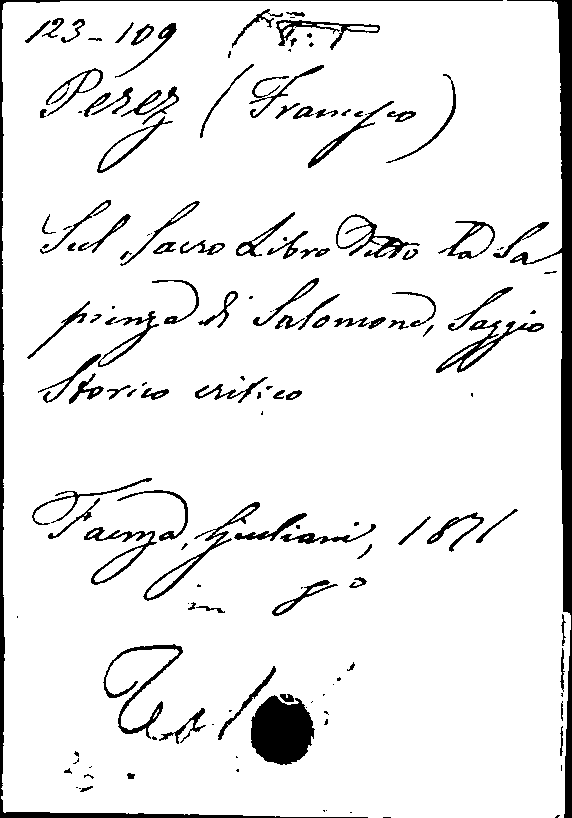 123-109
Perez (Francesco)
Sul Sacro Libro Detto la Sa-
pienza di Salomone, Saggio
Storico critico
Faenza, Giuliani, 1871
in 8°